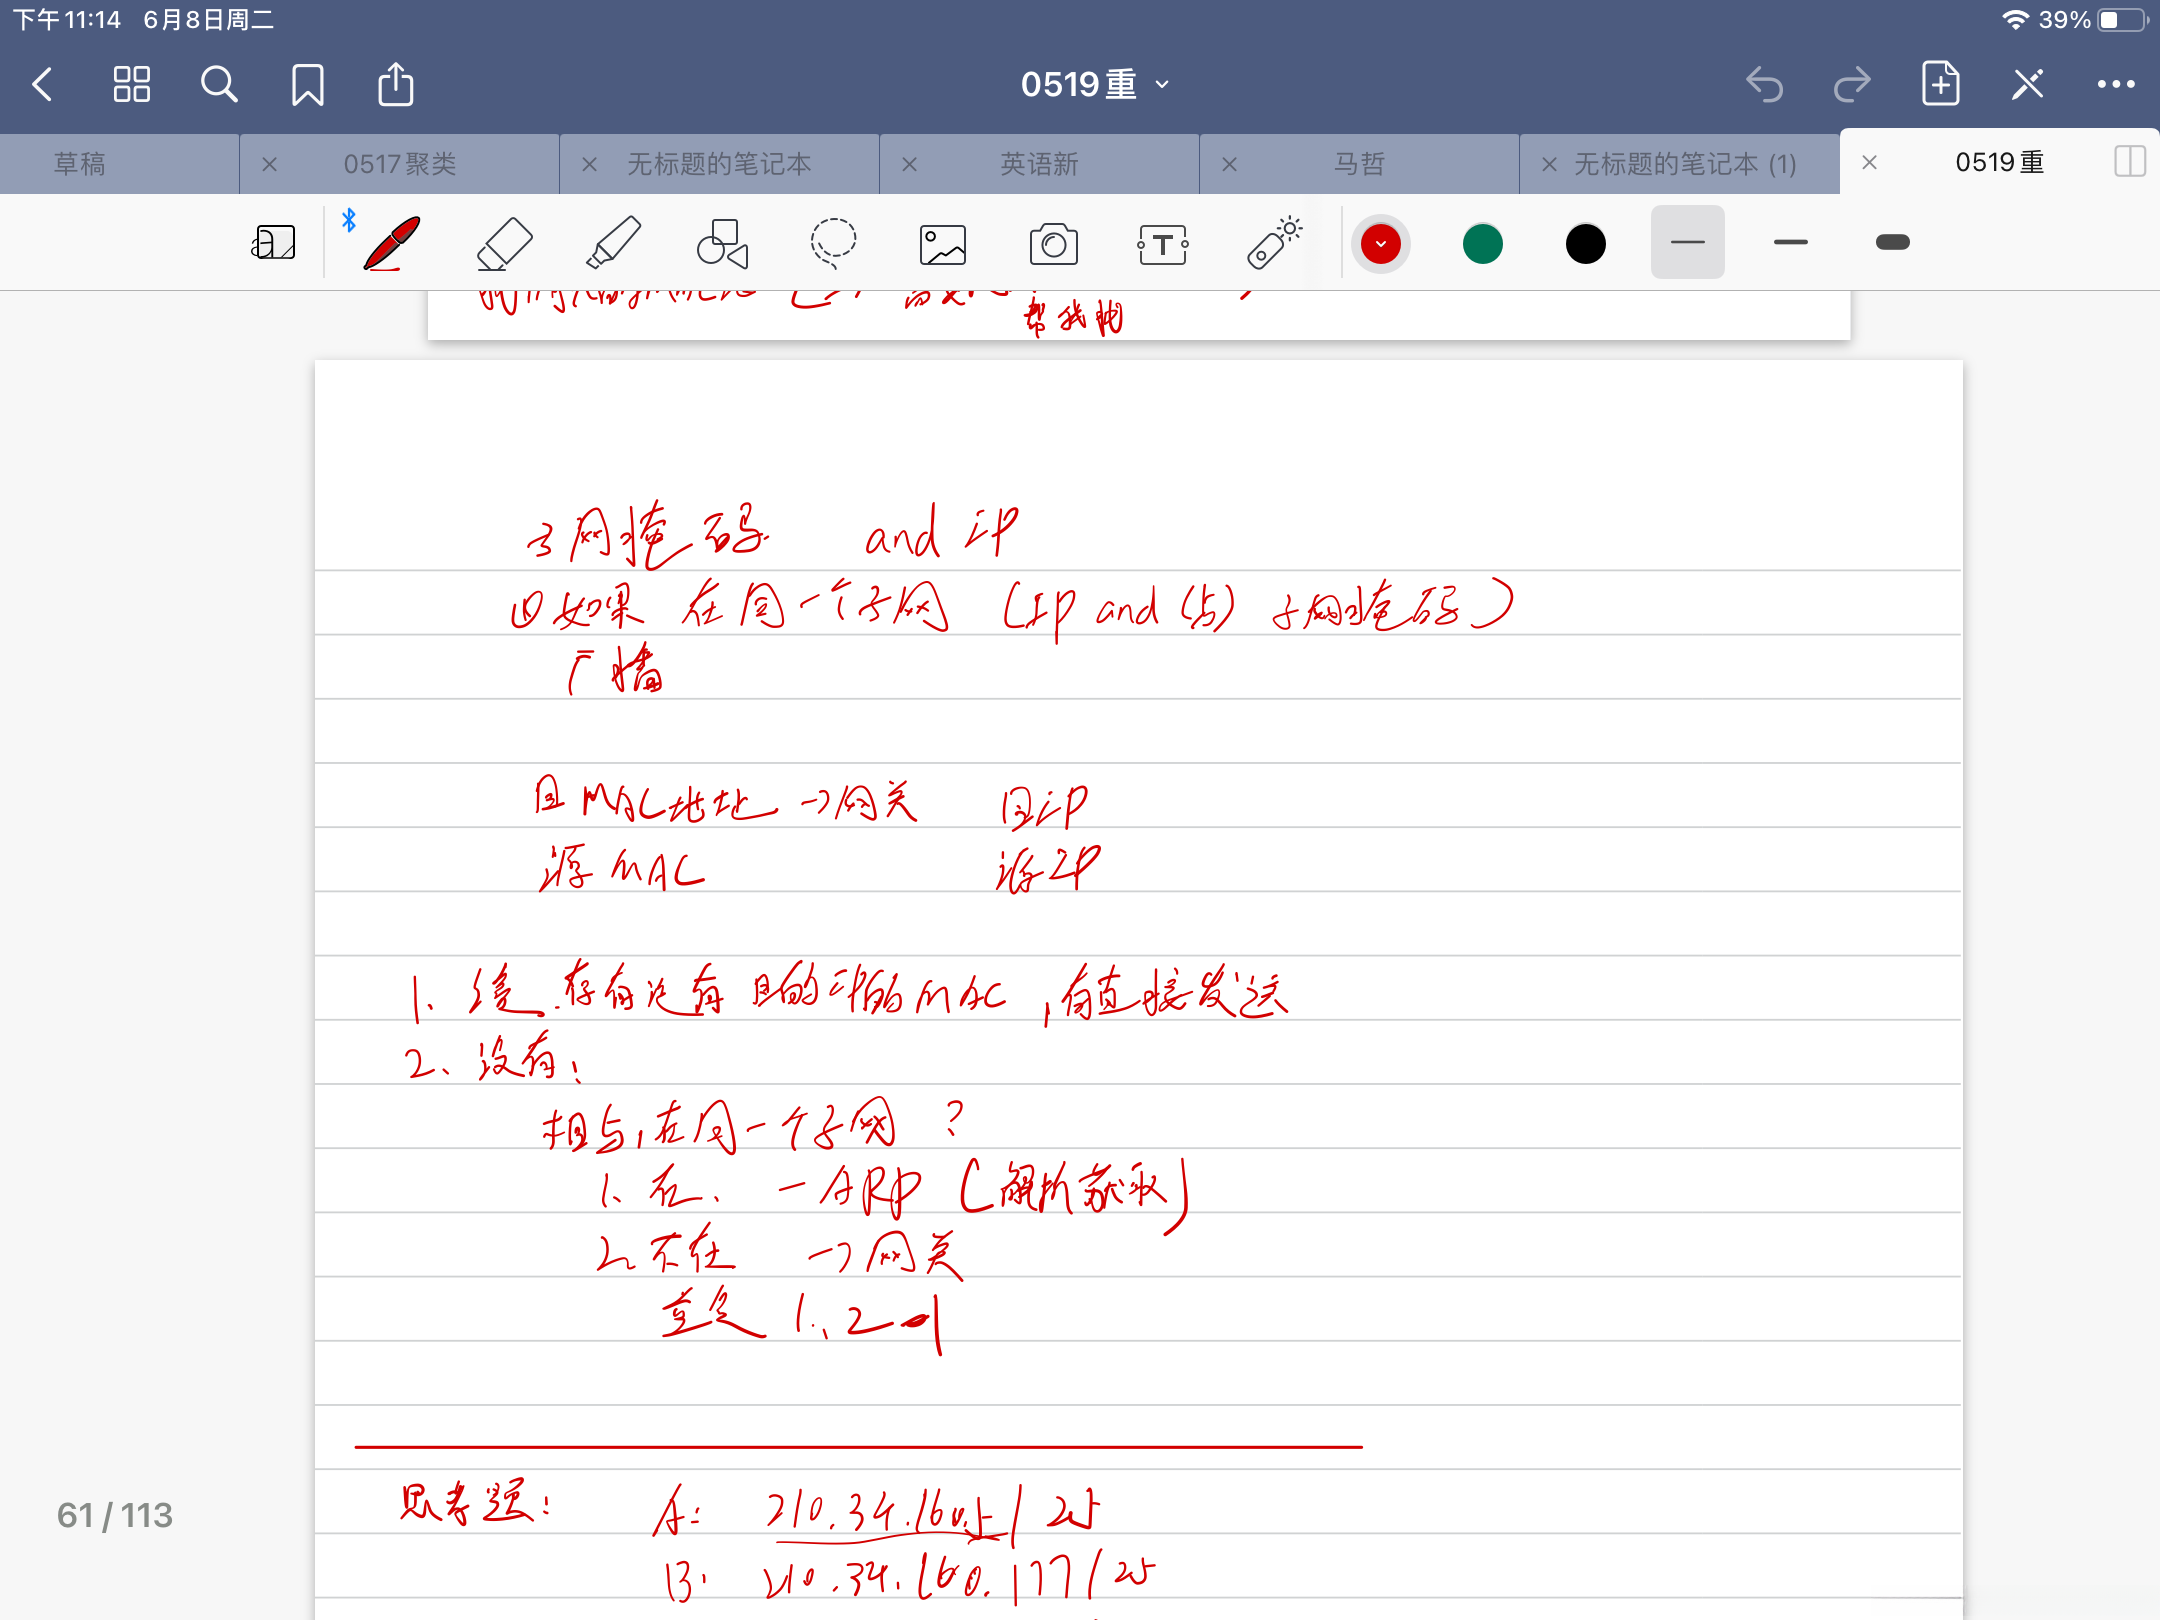 下午11:14 6月8日周二 39%
0519重
草稿 0517聚类 无标题的笔记本 英语新 马哲 无标题的笔记本 (1) 0519重
帮我
子网掩码 and IP
① 如果 在同一个子网 (IP and (与) 子网掩码)
广播
目MAC地址 → 网关 目IP
源MAC 源IP
1、缓存有没有 目的IP的MAC,有直接发送
2、没有:
相与,在同一个子网?
1、在、 - ARP (解析获取)
2、不在 → 网关
重复 1、2
思考题: A: 210.34.160.5/25
61 / 113
B: 210.34.160.177/25